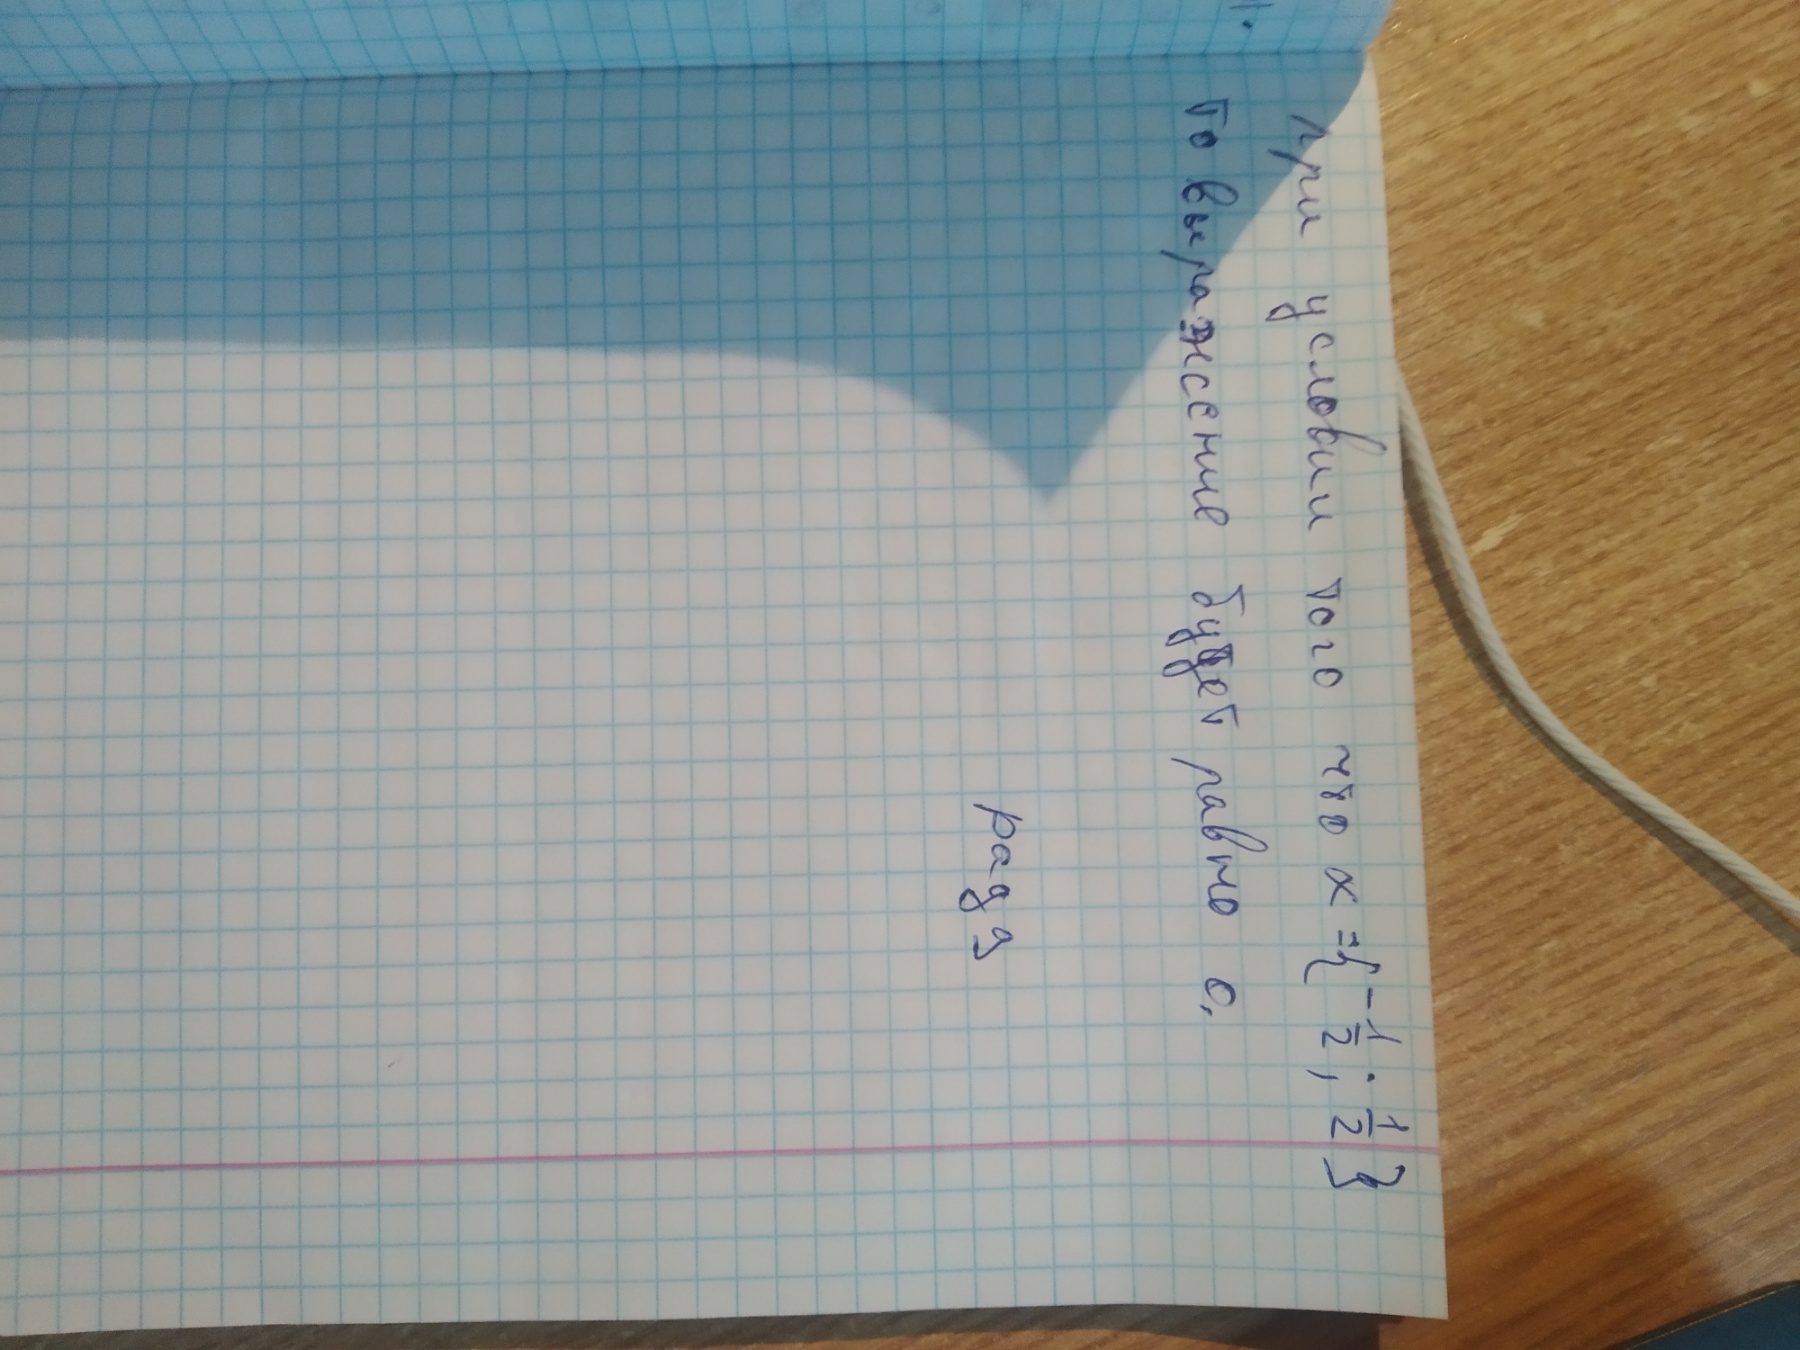 при условии того что x = {-1/2; 1/2}
то выражение будет равно 0,
рад 9